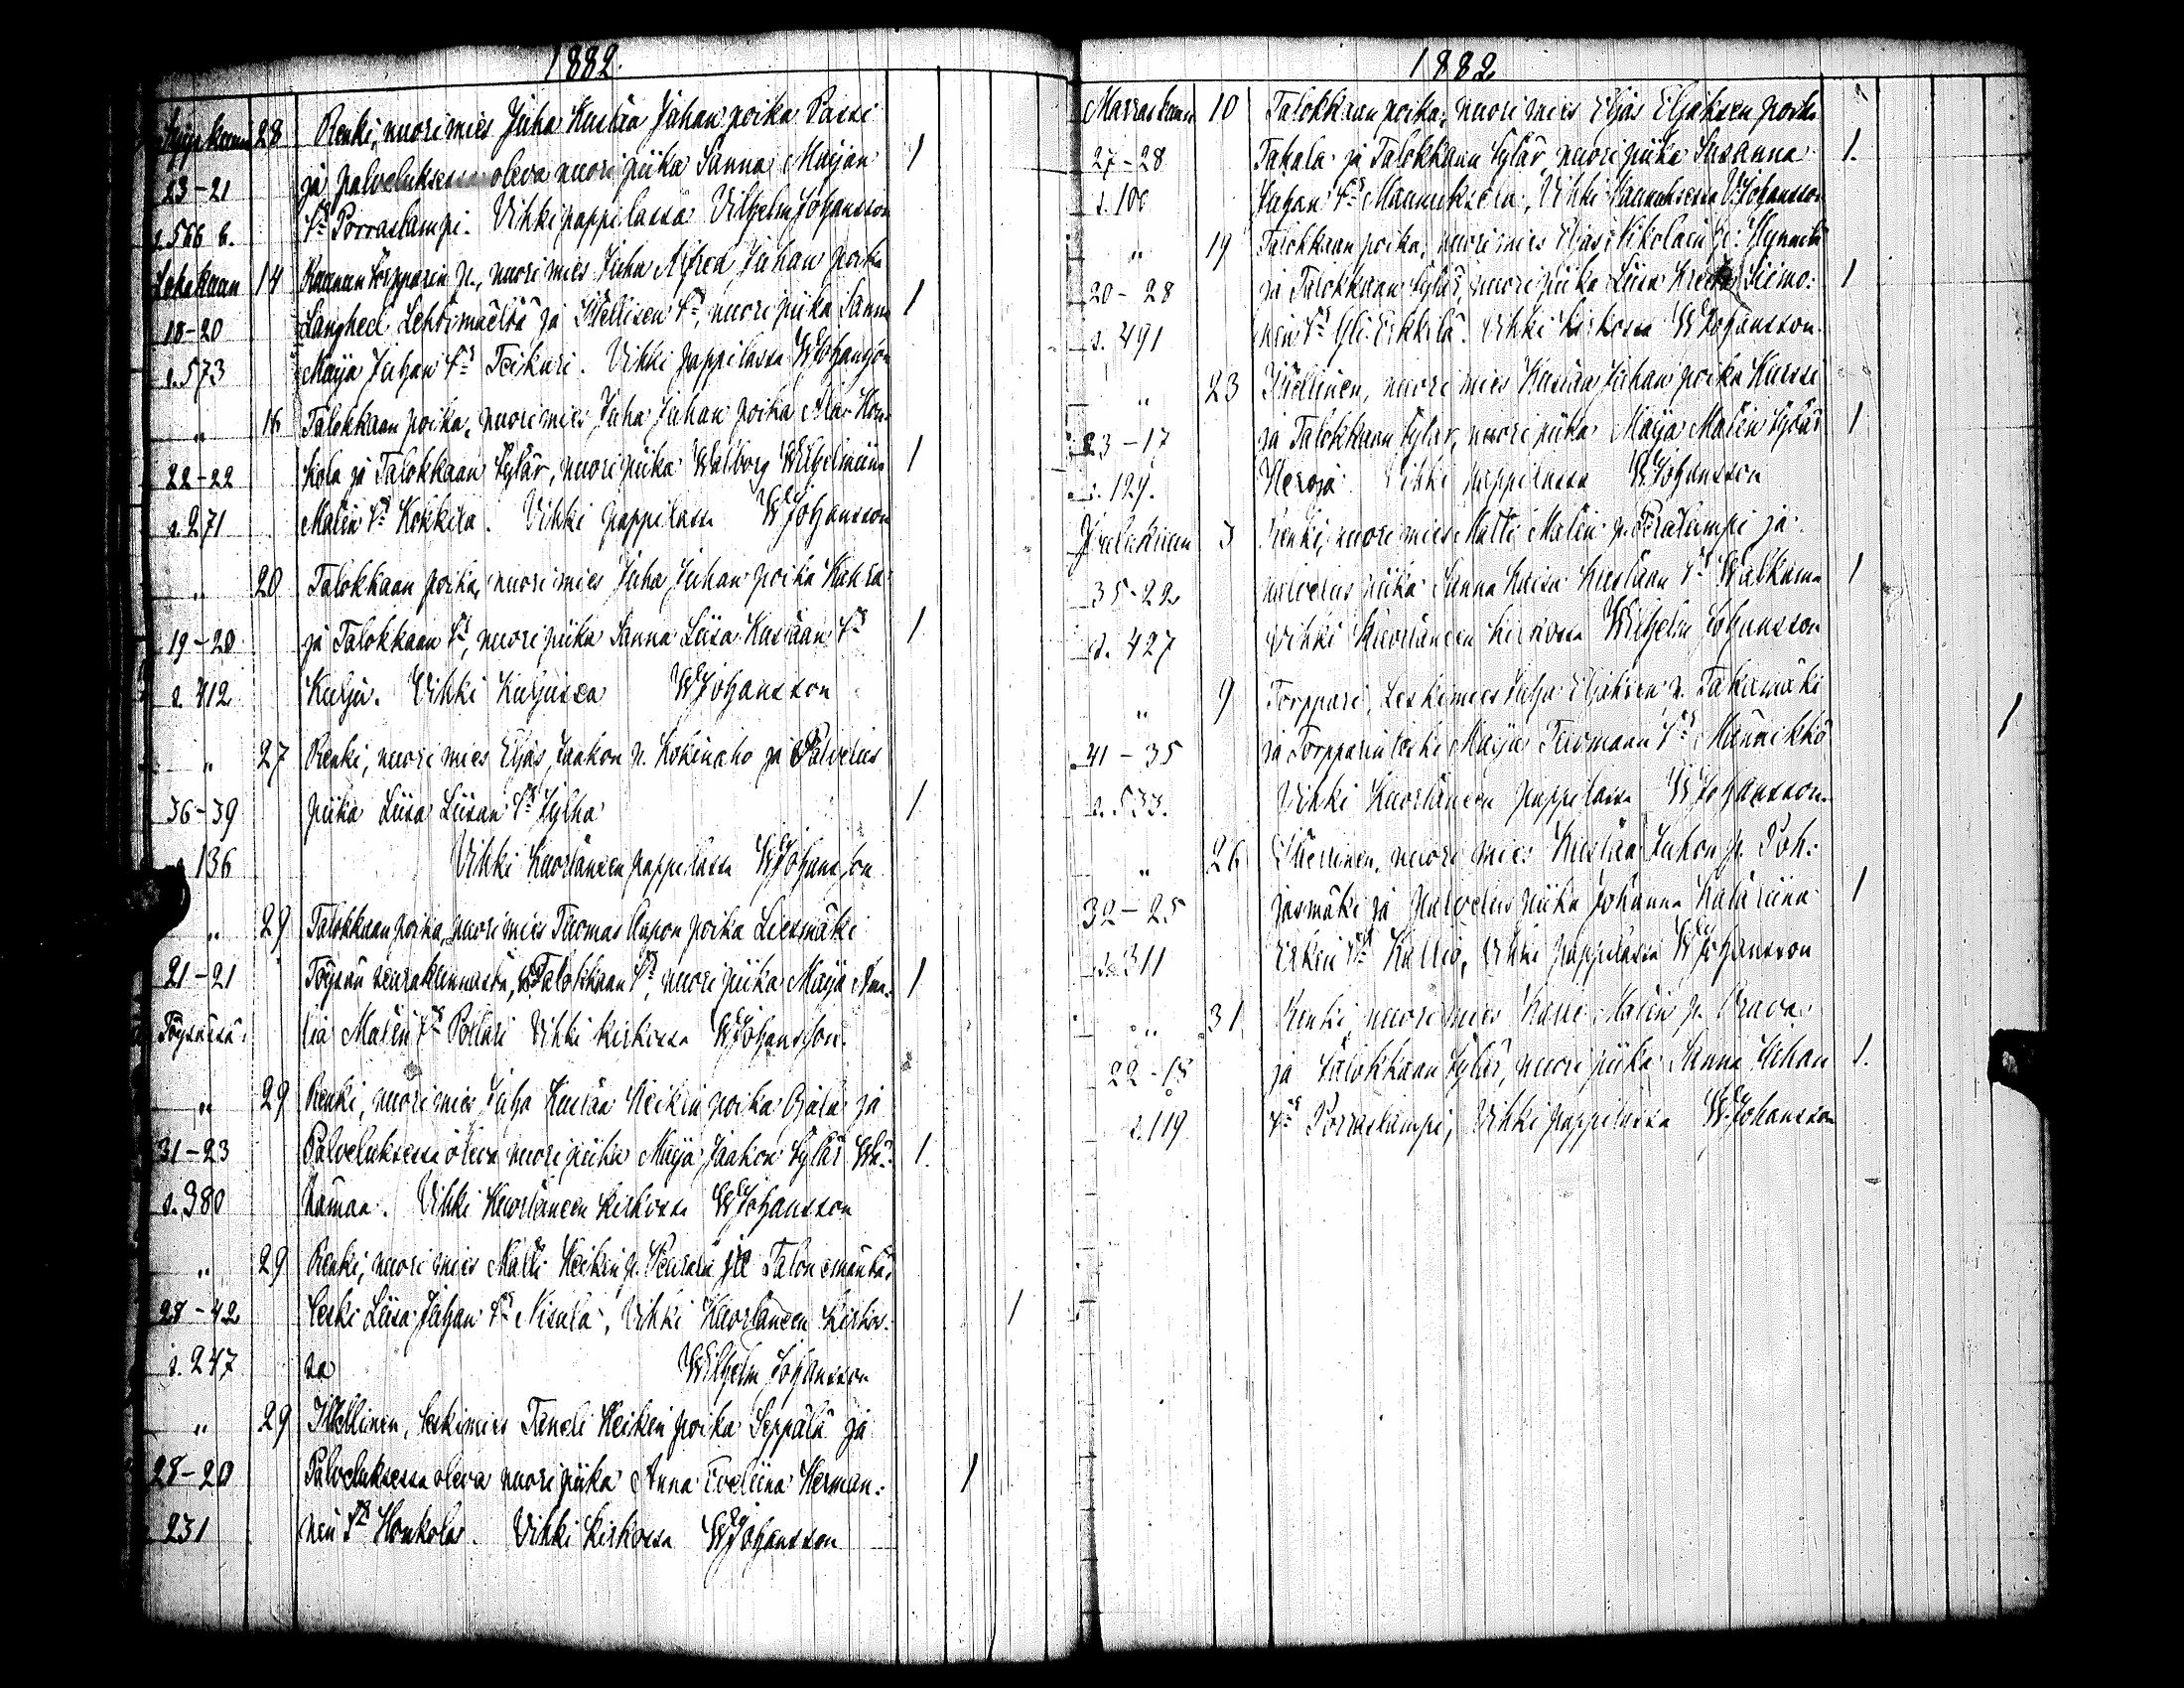 1882.
Syyskuun 28 Renki, nuori mies Juha Kustaa Juhan poika Passi
23-21 ja palveluksessa oleva nuori piika Sanna Maijan 1
s. 566 b. Tr Porraslampi. Vihki pappilassa Vilhelm Johansson
Lokakuun 14 Torpparin p., nuori mies Juha Alfred Juhan poika
18-20 Langhed Lehtimäeltä ja Itsellisen Tr, nuori piika Sanna 1
s. 573 Maija Juhan Tr Teikari. Vihki pappilassa WJohansson
" 16 Talokkaan poika, nuori mies Juha Juhan poika Ala-Hon-
22-22 kola ja Talokkaan Tytär, nuori piika Walborg Wilhelmiina 1
s. 271 Matin Tr Kokkila. Vihki pappilassa WJohansson
" 20 Talokkaan poika, nuori mies Juha Juhan poika
19-20 ja Talokkaan Tr, nuori piika Sanna Liisa Kustaan Tr 1
s. 412 Kulju. Vihki Kuljussa WJohansson
" 27 Renki, nuori mies Eljas Jaakon p. Kokinaho ja Palvelus
36-39 piika Liisa Liisan Tr Sylhä 1
136 Vihki Kuortaneen pappilassa WJohansson
" 29 Talokkaan poika, nuori mies Tuomas Aapon poika Liesmäki
21-21 Töysän seurakunnasta, ja Talokkaan Tr, nuori piika Maija Ama- 1
Töysässä. lia Matin Tr Potkari Vihki kirkossa WJohansson.
" 29 Renki, nuori mies Juha Kustaa Heikin poika Ojala ja
31-23 Palveluksessa oleva nuori piika Maija Jaakon Tytär 1.
s. 380 Vihki Kuortaneen kirkossa WJohansson
" 29 Renki, nuori mies Matti Heikin p. Peurala ja Talon emäntä,
28-42 leski Liisa Juhan Tr Nisula, Vihki Kuortaneen kirkos- 1
s. 247 sa Wilhelm Johansson
" 29 Itsellinen, leskimies Taneli Heikin poika Seppälä ja
28-20 Palveluksessa oleva nuori piika Anna Eveliina Herman- 1
231 nin Tr Honkola. Vihki kirkossa WJohansson
1882
Marraskuun 10 Talokkaan poika, nuori mies Eljas Eljaksen poika
27-28 Takala ja Talokkaan Tytär, nuori piika Susanna 1.
s. 100 Juhan Tr Mannuksela, Vihki Mannuksessa WJohansson
" 19 Talokkaan poika, nuori mies Eljas Nikolain p. Mynnilä
20-28 ja Talokkaan Tytär, nuori piika Liisa Kreeta Siimo- 1
s. 491 nin Tr Yli-Erkkilä. Vihki kirkossa WJohansson.
" 23 Itsellinen, nuori mies Kustaa Juhan poika Kurssi
23-17 ja Talokkaan Tytär, nuori piika Maija Matin Tytär 1
s. 129. Heroja. Vihki pappilassa WJohansson
Joulukuun 3 Renki, nuori mies Matti Matin p. Peralampi ja
35-22 palvelus piika Sanna Kaisa Kustaan Tr Walkama 1
s. 427 Vihki Kuortaneen kirkossa Wilhelm Johansson
" 9 Torppari, Leskimies Juha Eljaksen p. Takamäki
41-35 ja Torpparin leski Maija Tuomaan Tr Männikkö 1
s. 533. Vihki Kuortaneen pappilassa WJohansson.
" 26 Itsellinen, nuori mies Kustaa Juhon p. Poh-
32-25 jasmäki ja palvelus piika Johanna Katariina 1
s. 311 Erkin Tr Kallio, Vihki pappilassa WJohansson
" 31 Renki, nuori mies Kalle Matin p. Orava
22-18 ja Talokkaan Tytär, nuori piika Sanna Juhan 1.
s. 119 Tr Porraslampi, Vihki pappilassa WJohansson